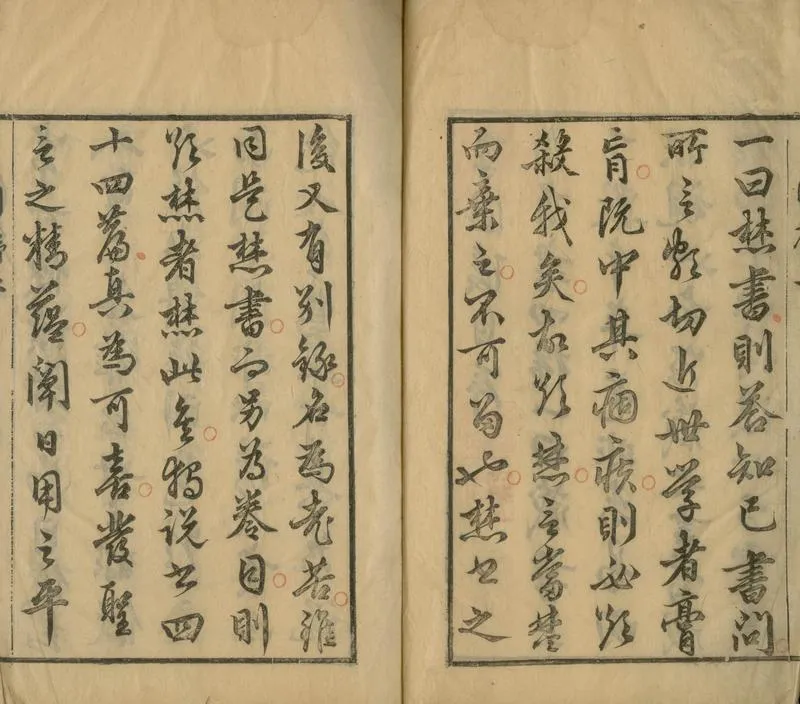 一曰焚書則荅知己書問
所言頗切近世學者膏
肓既中其痼疾則必欲
殺我矣故欲焚言當焚
而棄之不可留也焚書之
後又有別錄名為老苦雖
同是焚書而另為卷目則
欲焚者焚此矣獨說書四
十四篇真為可喜發聖
言之精蘊闡日用之平